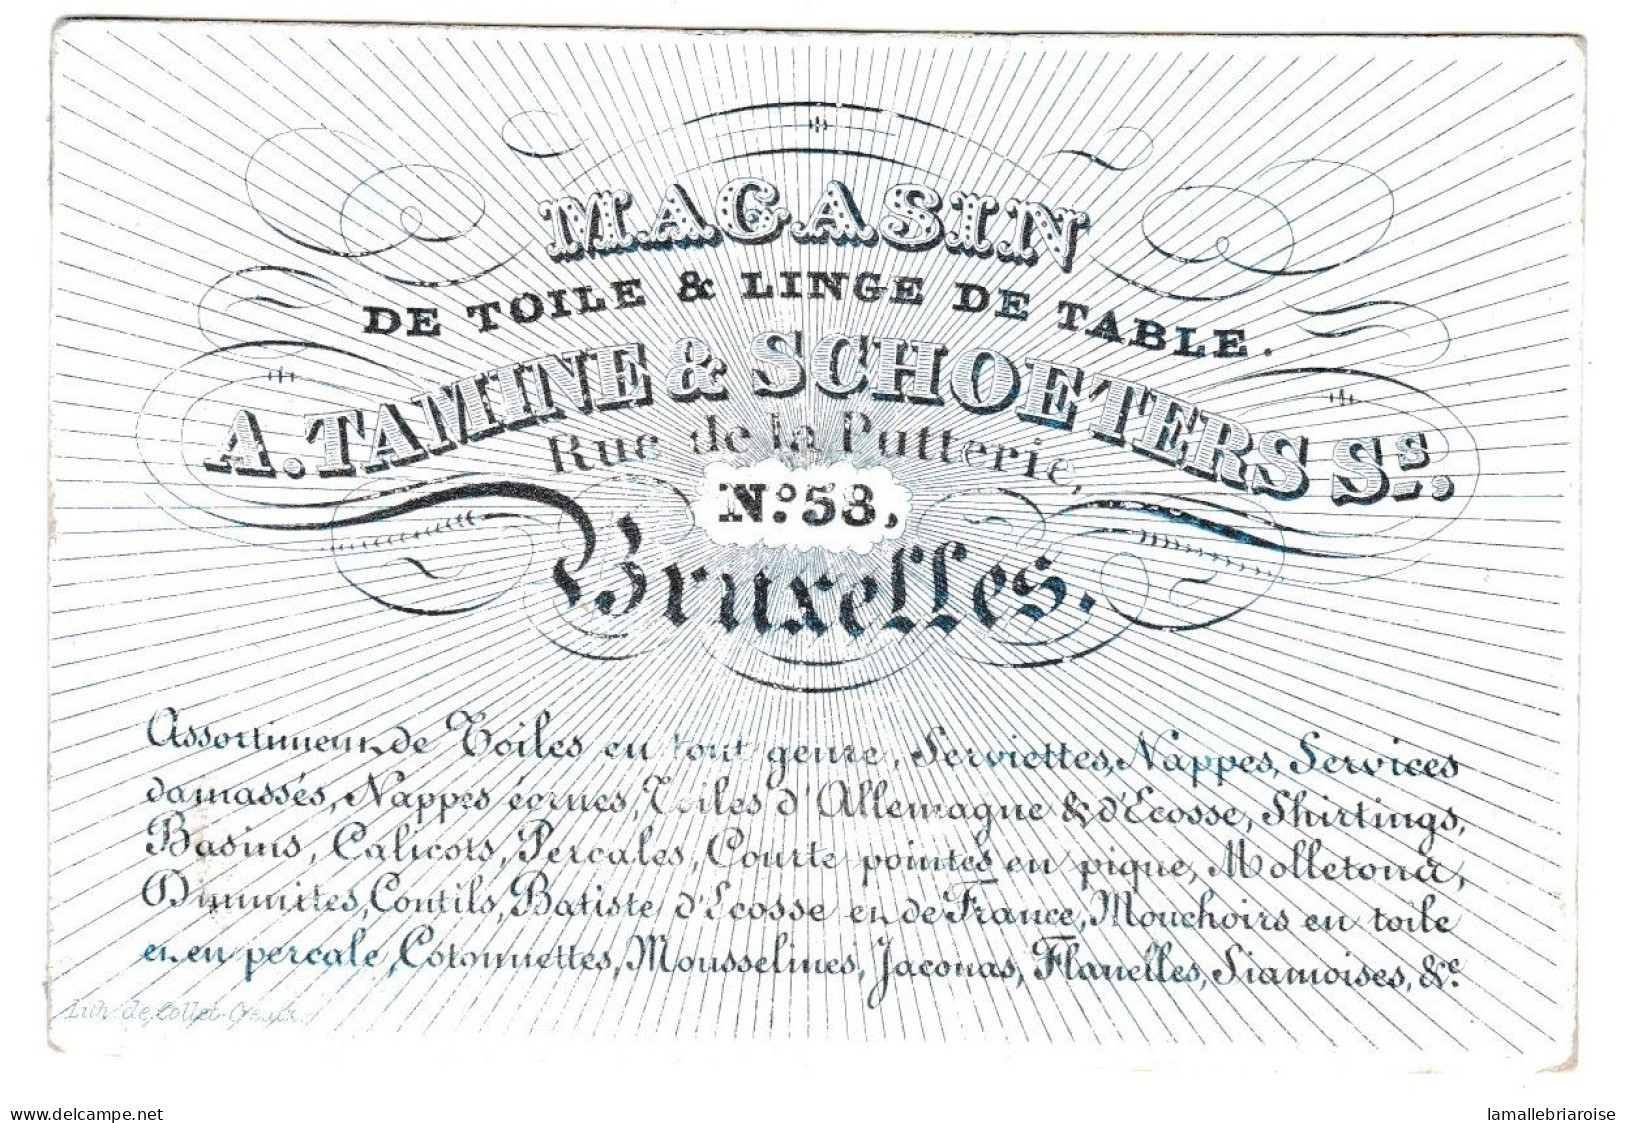 MAGASIN
DE TOILE & LINGE DE TABLE.
A. TAMINE & SCHOETERS Ss,
Rue de la Putterie,
No. 58,
Bruxelles.
Assortiment de Toiles en tout genre, Serviettes, Nappes, Services
damassés, Nappes écrues, Toiles d'Allemagne & d'Ecosse, Shirtings,
Basins, Calicots, Percales, Courte pointes en pique, Molletons,
Dimmites, Coutils, Batiste d'Ecosse et de France, Mouchoirs en toile
et en percale, Cotonnettes, Mousselines, Jaconas, Flanelles, Siamoises, &c.
Lith. de Collet
delcampe.net
lamallebriaroise